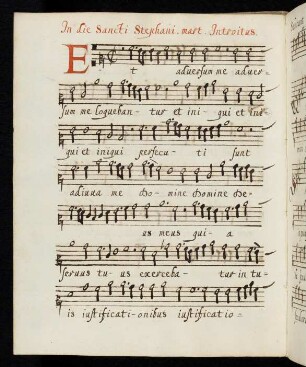 In die Sancti Stephani. mart. Introitus.
Et adversum me adver-
sum me loqueban- tur et ini- qui et ini
qui et iniqui persecu- ti sunt
adiuva me Domine Domine De-
us meus qui- a
servus tu- us exerceba- tur in tu-
is iustificati- onibus iustificatio-